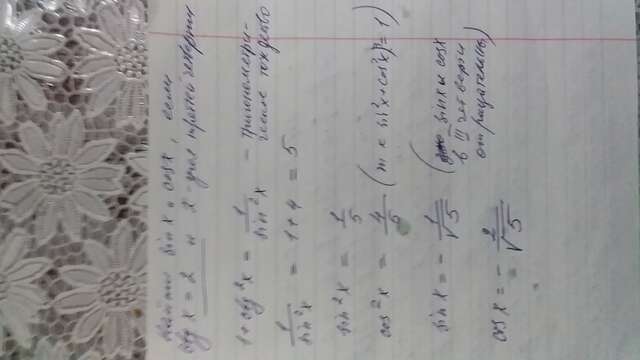 Найти sin x и cos x, если
ctg x = 2 и x - угол третьей четверти
1 + ctg²x = 1/sin²x - тригонометри-
ческое тождество
1/sin²x = 1 + 4 = 5
sin²x = 1/5
cos²x = 4/5 (т к sin²x + cos²x = 1)
sin x = - 1/√5 ( sin x и cos x
в III четверти
отрицательны)
cos x = - 2/√5